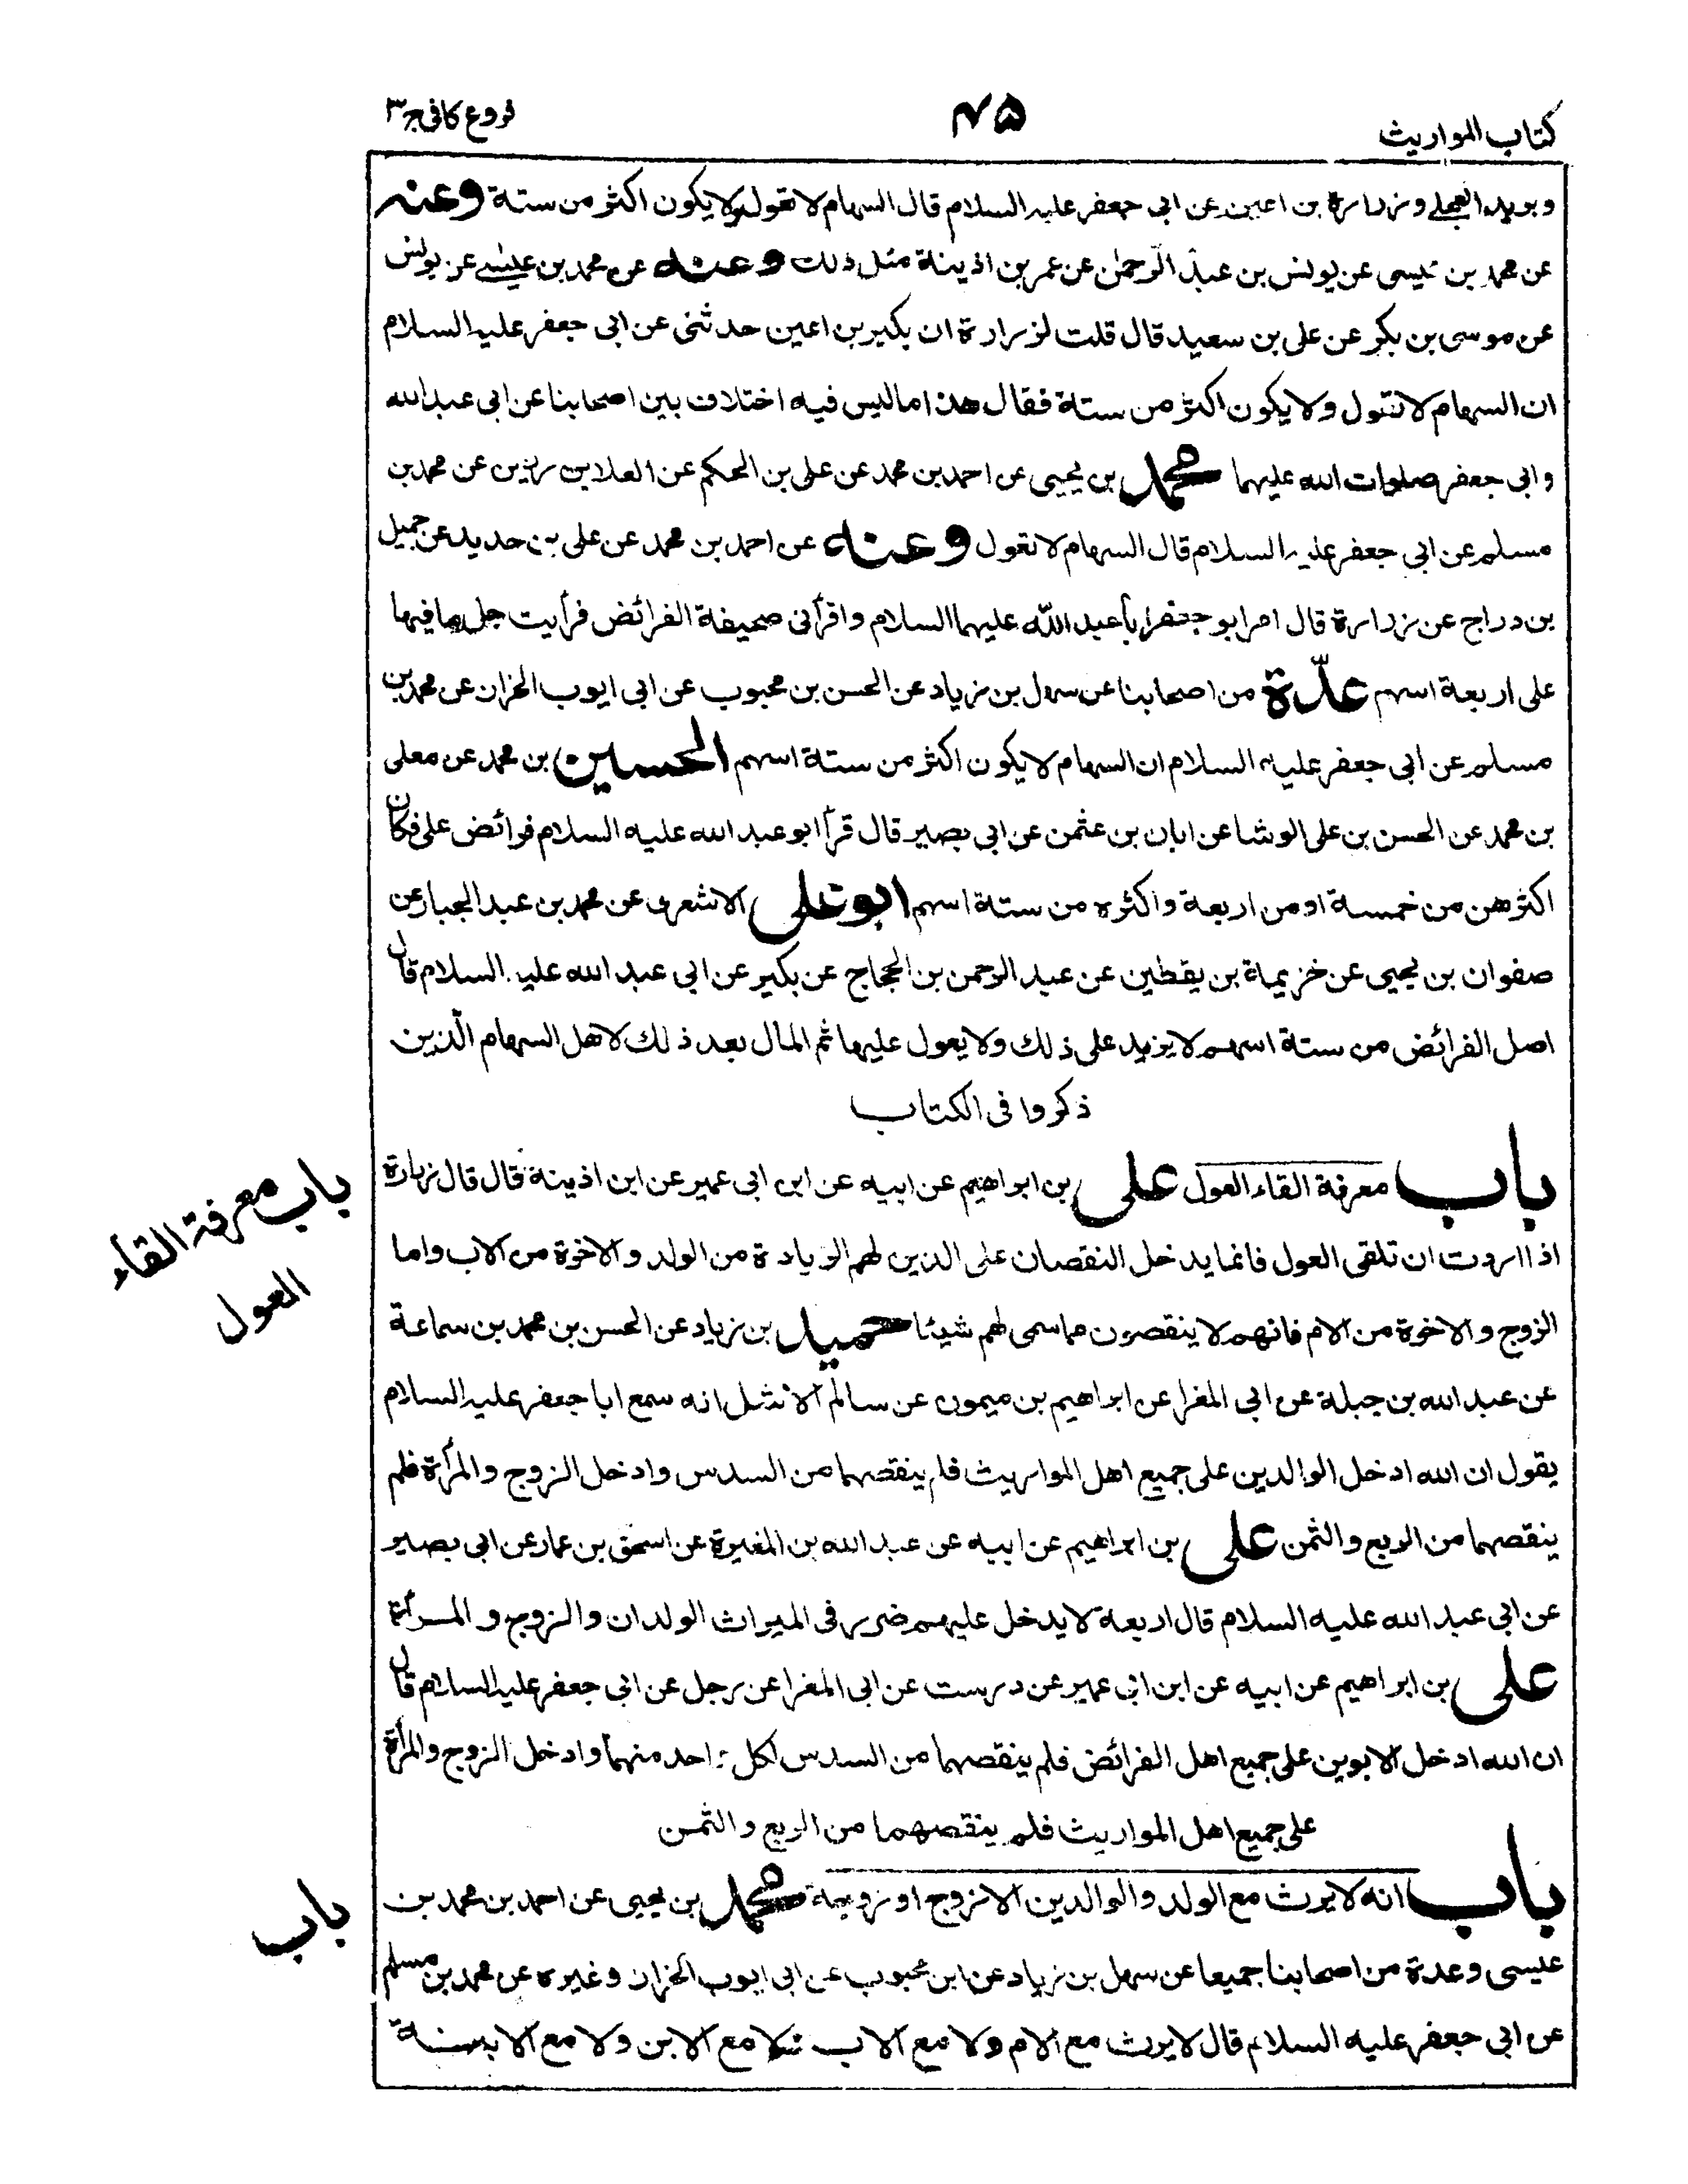 كتاب المواريث
۴۵
فروع كافى ج٣
وبريد العجلى وزرارة بن اعين عن ابى جعفر عليه السلام قال السهام لا تعول ولا يكون اكثر من ستة وعنه
عن محمد بن عيسى عن يونس بن عبد الرحمن عن عمر بن اذينة مثل ذلك وعنه عن محمد بن عيسى عن يونس
عن موسى بن بكر عن على بن سعيد قال قلت لزرارة ان بكير بن اعين حدثنى عن ابى جعفر عليه السلام
ان السهام لا تعول ولا يكون اكثر من ستة فقال هذا ما ليس فيه اختلاف بين اصحابنا عن ابى عبد الله
وابى جعفر صلوات الله عليهما محمد بن يحيى عن احمد بن محمد عن على بن الحكم عن العلا بن رزين عن محمد بن
مسلم عن ابى جعفر عليه السلام قال السهام لا تعول وعنه عن احمد بن محمد عن على بن حديد عن جميل
بن دراج عن زرارة قال امر ابو جعفر ابا عبد الله عليهما السلام واقرأنى صحيفة الفرائض فرأيت جل ما فيها
على اربعة اسهم عدّة من اصحابنا عن سهل بن زياد عن الحسن بن محبوب عن ابى ايوب الخزان عن محمد بن
مسلم عن ابى جعفر عليه السلام ان السهام لا يكون اكثر من ستة اسهم الحسين بن محمد عن معلى
بن محمد عن الحسن بن على الوشا عن ابان بن عثمن عن ابى بصير قال قرأ ابو عبد الله عليه السلام فرائض على فكان
اكثرهن من خمسة او من اربعة واكثره من ستة اسهم ابو على الاشعرى عن محمد بن عبد الجبار عن
صفوان بن يحيى عن خزيمة بن يقطين عن عبد الرحمن بن الحجاج عن بكير عن ابى عبد الله عليه السلام قال
اصل الفرائض من ستة اسهم لا يزيد على ذلك ولا يعول عليها ثم المال بعد ذلك لاهل السهام الّذين
ذكروا فى الكتاب
باب معرفة القاء العول على بن ابراهيم عن ابيه عن ابن ابى عمير عن ابن اذينة قال قال زرارة
اذا اردت ان تلقى العول فانما يدخل النقصان على الذين لهم الزيادة من الولد والاخوة من الاب واما
الزوج والاخوة من الام فانهم لا ينقصون مما سمى لهم شيئا حميد بن زياد عن الحسن بن محمد بن سماعة
عن عبد الله بن جبلة عن ابى المغرا عن ابراهيم بن ميمون عن سالم الاشل انه سمع ابا جعفر عليه السلام
يقول ان الله ادخل الوالدين على جميع اهل المواريث فلم ينقصهما من السدس وادخل الزوج والمرأة فلم
ينقصهما من الربع والثمن على بن ابراهيم عن ابيه عن عبد الله بن المغيرة عن اسحق بن عمار عن ابى بصير
عن ابى عبد الله عليه السلام قال اربعة لا يدخل عليهم ضرر فى الميراث الولدان والزوج و المرأة
على بن ابراهيم عن ابيه عن ابن ابى عمير عن درست عن ابى المغرا عن رجل عن ابى جعفر عليه السلام قال
ان الله ادخل الابوين على جميع اهل الفرائض فلم ينقصهما من السدس لكل واحد منهما وادخل الزوج والمرأة
على جميع اهل المواريث فلم ينقصهما من الربع والثمن
باب انه لا يرث مع الولد والوالدين الا زوج او زوجة محمد بن يحيى عن احمد بن محمد بن
عيسى وعدة من اصحابنا جميعا عن سهل بن زياد عن ابن محبوب عن ابى ايوب الخزان وغيره عن محمد بن مسلم
عن ابى جعفر عليه السلام قال لا يرث مع الام ولا مع الاب ولا مع الابن ولا مع الابنة
باب معرفة القاء
العول
باب